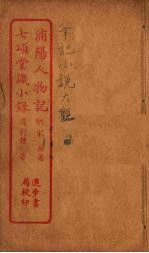 筆記小説大觀
浦陽人物記 明宋著
七頌堂識小錄 清劉體著
進步書
局校印